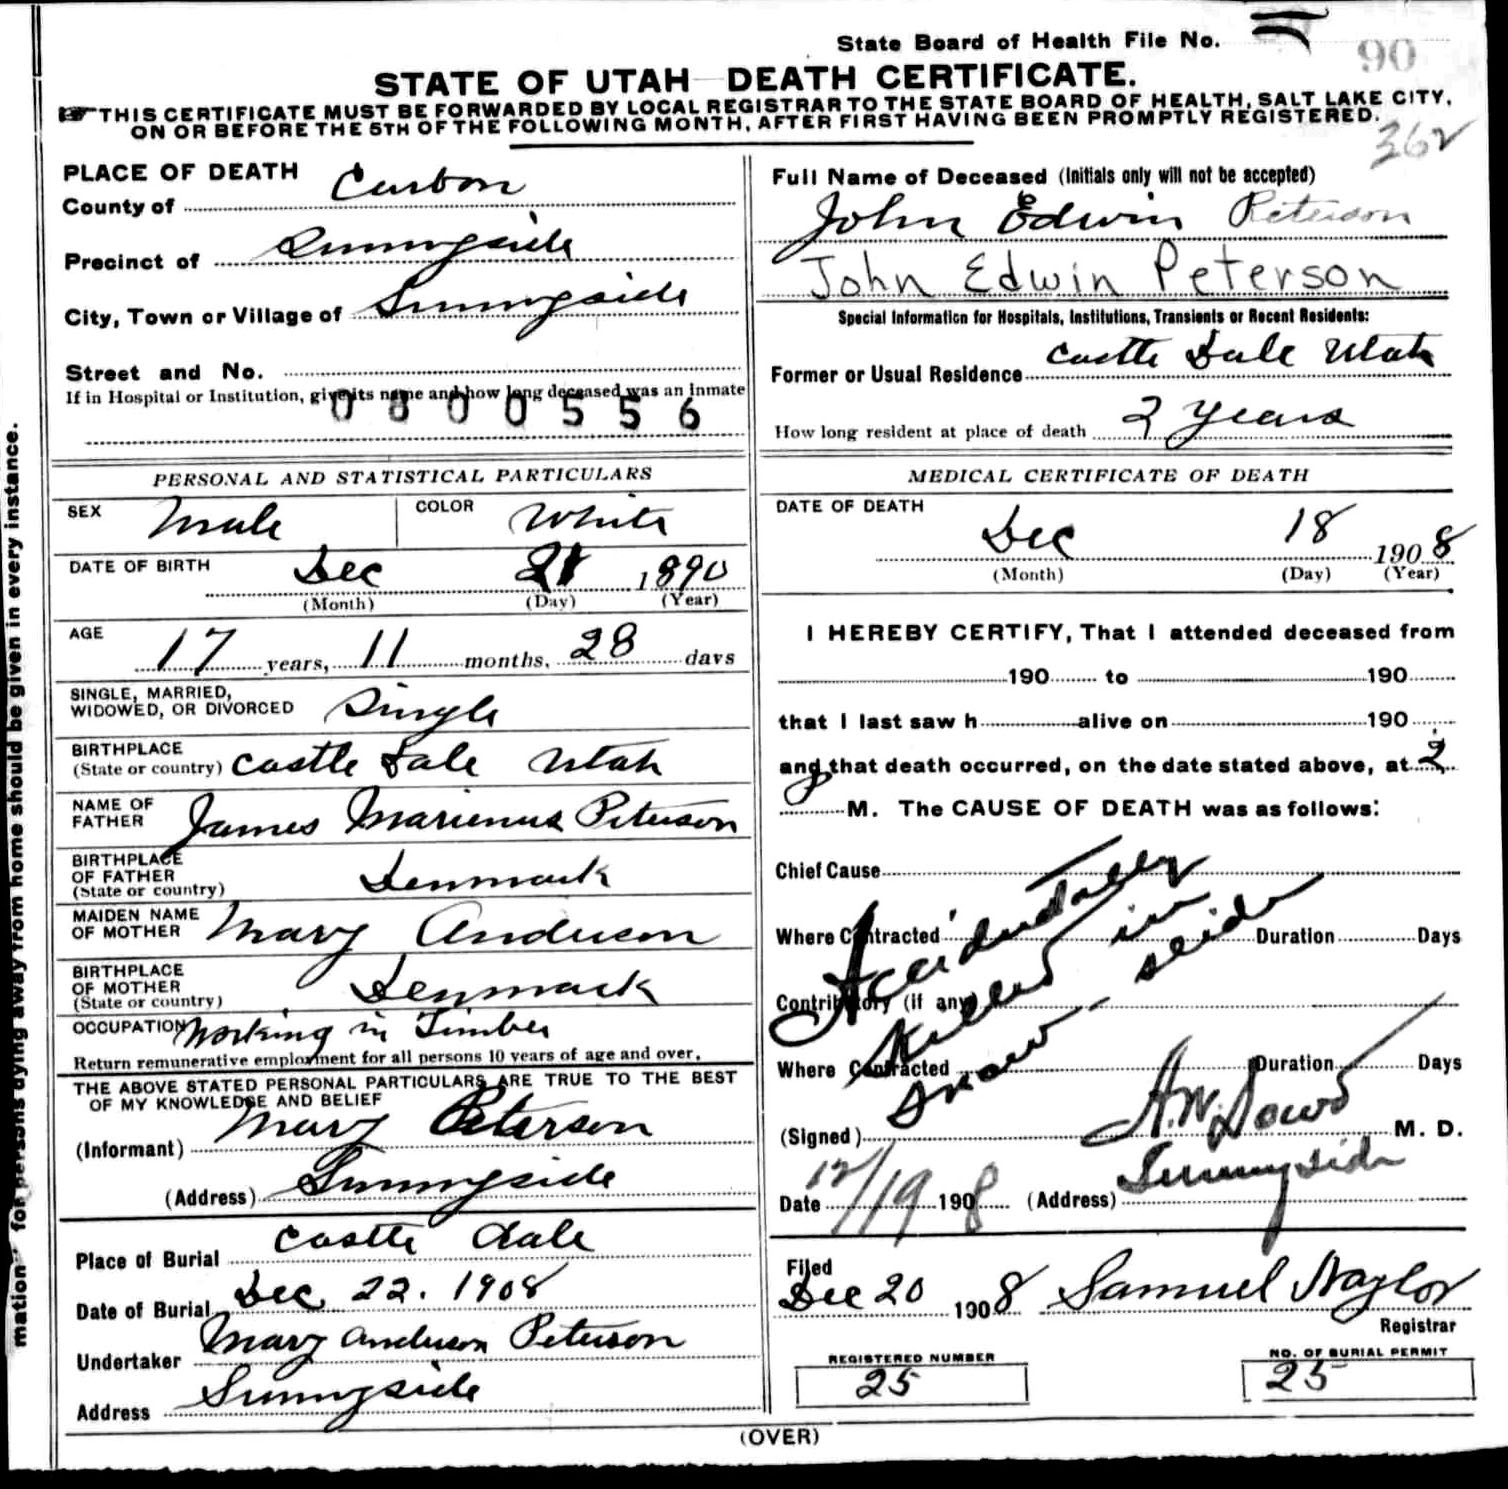 State Board of Health File No.
90
STATE OF UTAH DEATH CERTIFICATE.
THIS CERTIFICATE MUST BE FORWARDED BY LOCAL REGISTRAR TO THE STATE BOARD OF HEALTH, SALT LAKE CITY,
ON OR BEFORE THE 5TH OF THE FOLLOWING MONTH, AFTER FIRST HAVING BEEN PROMPTLY REGISTERED.
362
PLACE OF DEATH
County of Carbon
Precinct of Sunnyside
City, Town or Village of Sunnyside
Street and No.
If in Hospital or Institution, give its name and how long deceased was an inmate
0800556
PERSONAL AND STATISTICAL PARTICULARS
SEX Male COLOR White
DATE OF BIRTH Dec 21 1890
(Month) (Day) (Year)
AGE 17 years, 11 months, 28 days
SINGLE, MARRIED,
WIDOWED, OR DIVORCED Single
BIRTHPLACE
(State or country) Castle Dale Utah
NAME OF
FATHER James Marienus Peterson
BIRTHPLACE
OF FATHER
(State or country) Denmark
MAIDEN NAME
OF MOTHER Mary Anderson
BIRTHPLACE
OF MOTHER
(State or country) Denmark
OCCUPATION Working in Timber
Return remunerative employment for all persons 10 years of age and over.
THE ABOVE STATED PERSONAL PARTICULARS ARE TRUE TO THE BEST
OF MY KNOWLEDGE AND BELIEF
(Informant) Mary Peterson
(Address) Sunnyside
Place of Burial Castle dale
Date of Burial Dec 22. 1908
Undertaker Mary Anderson Peterson
Address Sunnyside
Full Name of Deceased (Initials only will not be accepted)
John Edwin Peterson
John Edwin Peterson
Special Information for Hospitals, Institutions, Transients or Recent Residents:
Former or Usual Residence Castle Dale Utah
How long resident at place of death 2 years
MEDICAL CERTIFICATE OF DEATH
DATE OF DEATH
Dec 18 1908
(Month) (Day) (Year)
I HEREBY CERTIFY, That I attended deceased from
190 to 190
that I last saw h alive on 190
and that death occurred, on the date stated above, at 2
P M. The CAUSE OF DEATH was as follows:
Chief Cause
Where Contracted Duration Days
Contributory (if any)
Where Contracted Duration Days
Accidentally
killed in
snow-slide
(Signed) A.W. Dowd M. D.
Date 12/19 1908 (Address) Sunnyside
Filed
Dec 20 1908 Samuel Naylor
Registrar
REGISTERED NUMBER
25
NO. OF BURIAL PERMIT
25
(OVER)
mation for persons dying away from home should be given in every instance.